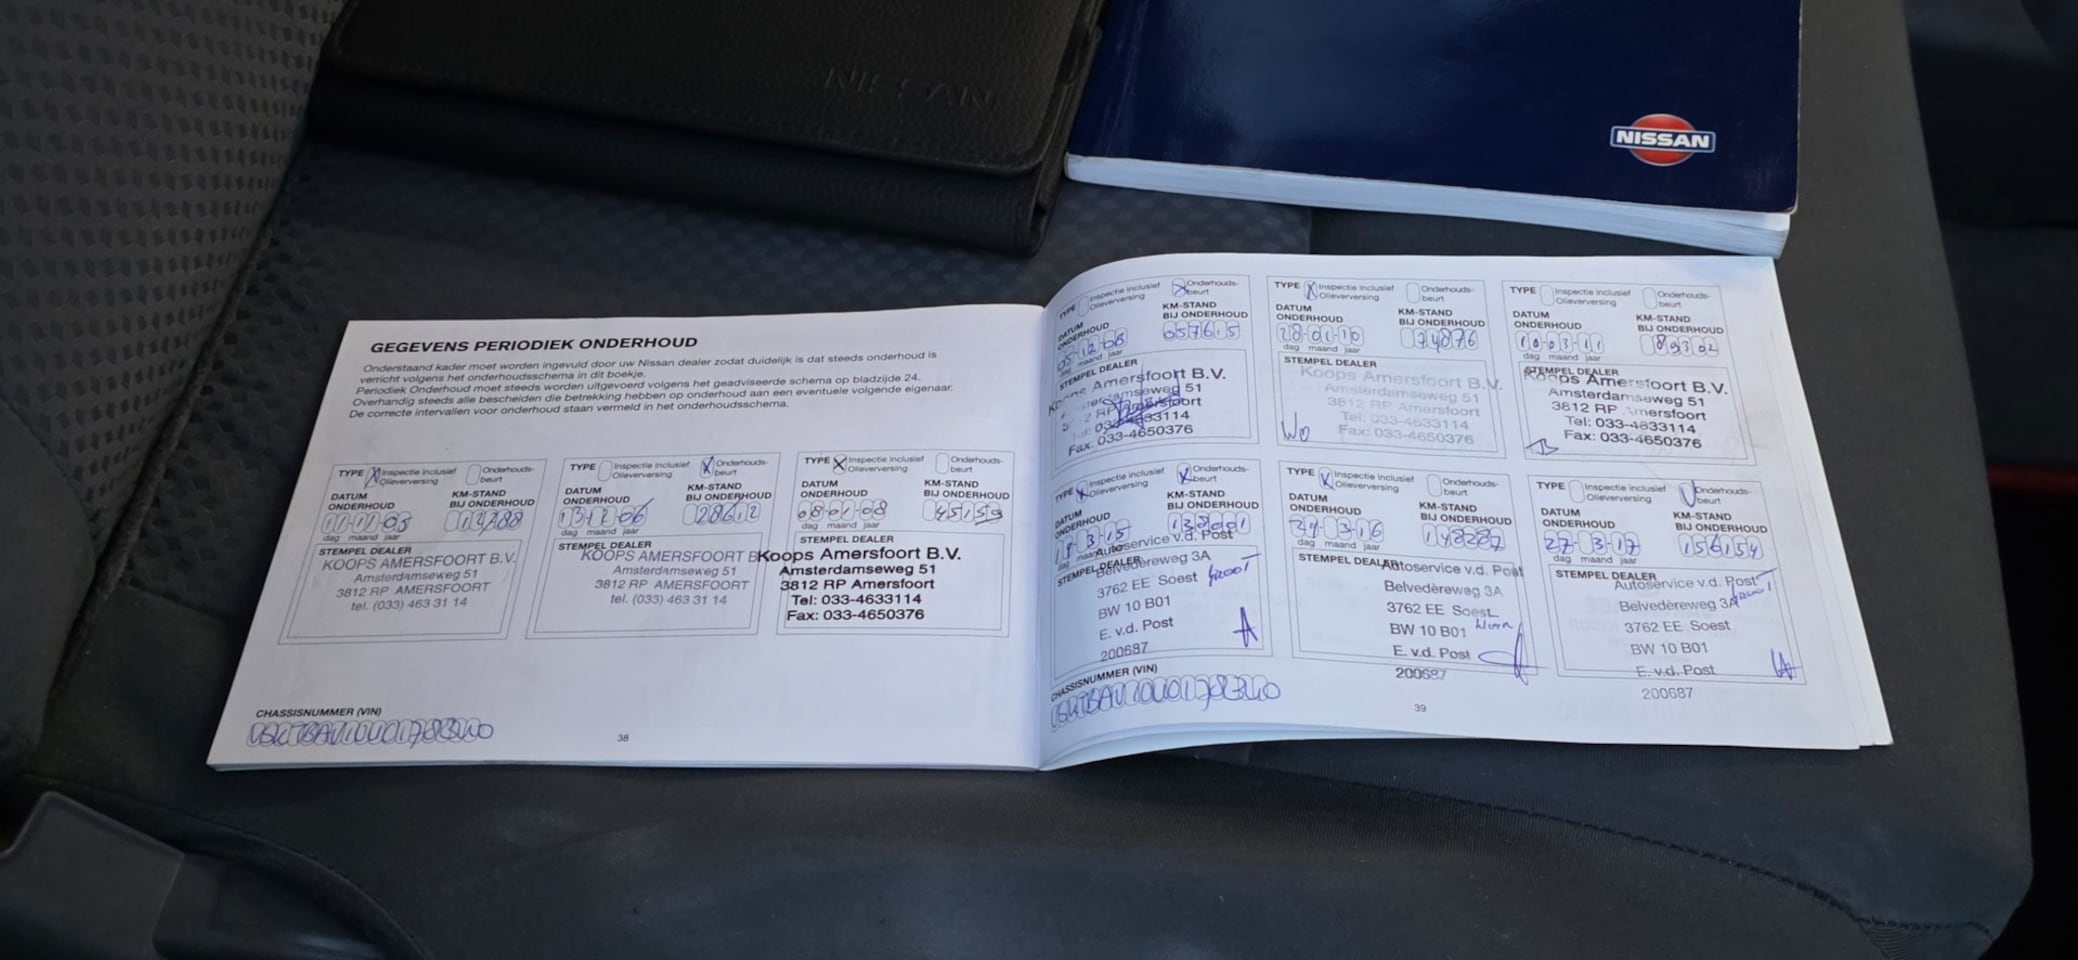 NISSAN
NISSAN
GEGEVENS PERIODIEK ONDERHOUD
Onderstaand kader moet worden ingevuld door uw Nissan dealer zodat duidelijk is dat steeds onderhoud is
verricht volgens het onderhoudsschema in dit boekje.
Periodiek Onderhoud moet steeds worden uitgevoerd volgens het geadviseerde schema op bladzijde 24.
Overhandig steeds alle bescheiden die betrekking hebben op onderhoud aan een eventuele volgende eigenaar.
De correcte intervallen voor onderhoud staan vermeld in het onderhoudsschema.
TYPE X Inspectie inclusief Olieverversing Onderhouds-beurt
DATUM ONDERHOUD
KM-STAND BIJ ONDERHOUD
dag maand jaar
STEMPEL DEALER
KOOPS AMERSFOORT B.V.
Amsterdamseweg 51
3812 RP AMERSFOORT
tel. (033) 463 31 14
TYPE Inspectie inclusief Olieverversing X Onderhouds-beurt
DATUM ONDERHOUD
13-12-06
KM-STAND BIJ ONDERHOUD
28612
dag maand jaar
STEMPEL DEALER
KOOPS AMERSFOORT B
Amsterdamseweg 51
3812 RP AMERSFOORT
tel. (033) 463 31 14
TYPE X Inspectie inclusief Olieverversing Onderhouds-beurt
DATUM ONDERHOUD
08-01-08
KM-STAND BIJ ONDERHOUD
45159
dag maand jaar
STEMPEL DEALER
Koops Amersfoort B.V.
Amsterdamseweg 51
3812 RP Amersfoort
Tel: 033-4633114
Fax: 033-4650376
CHASSISNUMMER (VIN)
38
TYPE Inspectie inclusief Olieverversing X Onderhouds-beurt
DATUM ONDERHOUD
05-12-08
KM-STAND BIJ ONDERHOUD
057615
dag maand jaar
STEMPEL DEALER
Koops Amersfoort B.V.
Amsterdamseweg 51
Fax: 033-4650376
TYPE X Inspectie inclusief Olieverversing Onderhouds-beurt
DATUM ONDERHOUD
28-01-10
KM-STAND BIJ ONDERHOUD
74876
dag maand jaar
STEMPEL DEALER
Koops Amersfoort B.V.
Amsterdamseweg 51
3812 RP Amersfoort
Tel: 033-4633114
Fax: 033-4650376
TYPE Inspectie inclusief Olieverversing Onderhouds-beurt
DATUM ONDERHOUD
10-03-11
KM-STAND BIJ ONDERHOUD
89302
dag maand jaar
STEMPEL DEALER
Koops Amersfoort B.V.
Amsterdamseweg 51
3812 RP Amersfoort
Tel: 033-4633114
Fax: 033-4650376
TYPE X Inspectie inclusief Olieverversing X Onderhouds-beurt
DATUM ONDERHOUD
KM-STAND BIJ ONDERHOUD
138001
STEMPEL DEALER
Autoservice v.d. Post
Belvedèreweg 3A
3762 EE Soest
BW 10 B01
E. v.d. Post
200687
TYPE X Inspectie inclusief Olieverversing Onderhouds-beurt
DATUM ONDERHOUD
KM-STAND BIJ ONDERHOUD
148287
dag maand jaar
STEMPEL DEALER
Autoservice v.d. Post
Belvedèreweg 3A
3762 EE Soest
BW 10 B01
E. v.d. Post
200687
TYPE Inspectie inclusief Olieverversing Onderhouds-beurt
DATUM ONDERHOUD
27-3-17
KM-STAND BIJ ONDERHOUD
156154
dag maand jaar
STEMPEL DEALER
Autoservice v.d. Post
Belvedèreweg 3A
3762 EE Soest
BW 10 B01
E. v.d. Post
200687
CHASSISNUMMER (VIN)
39